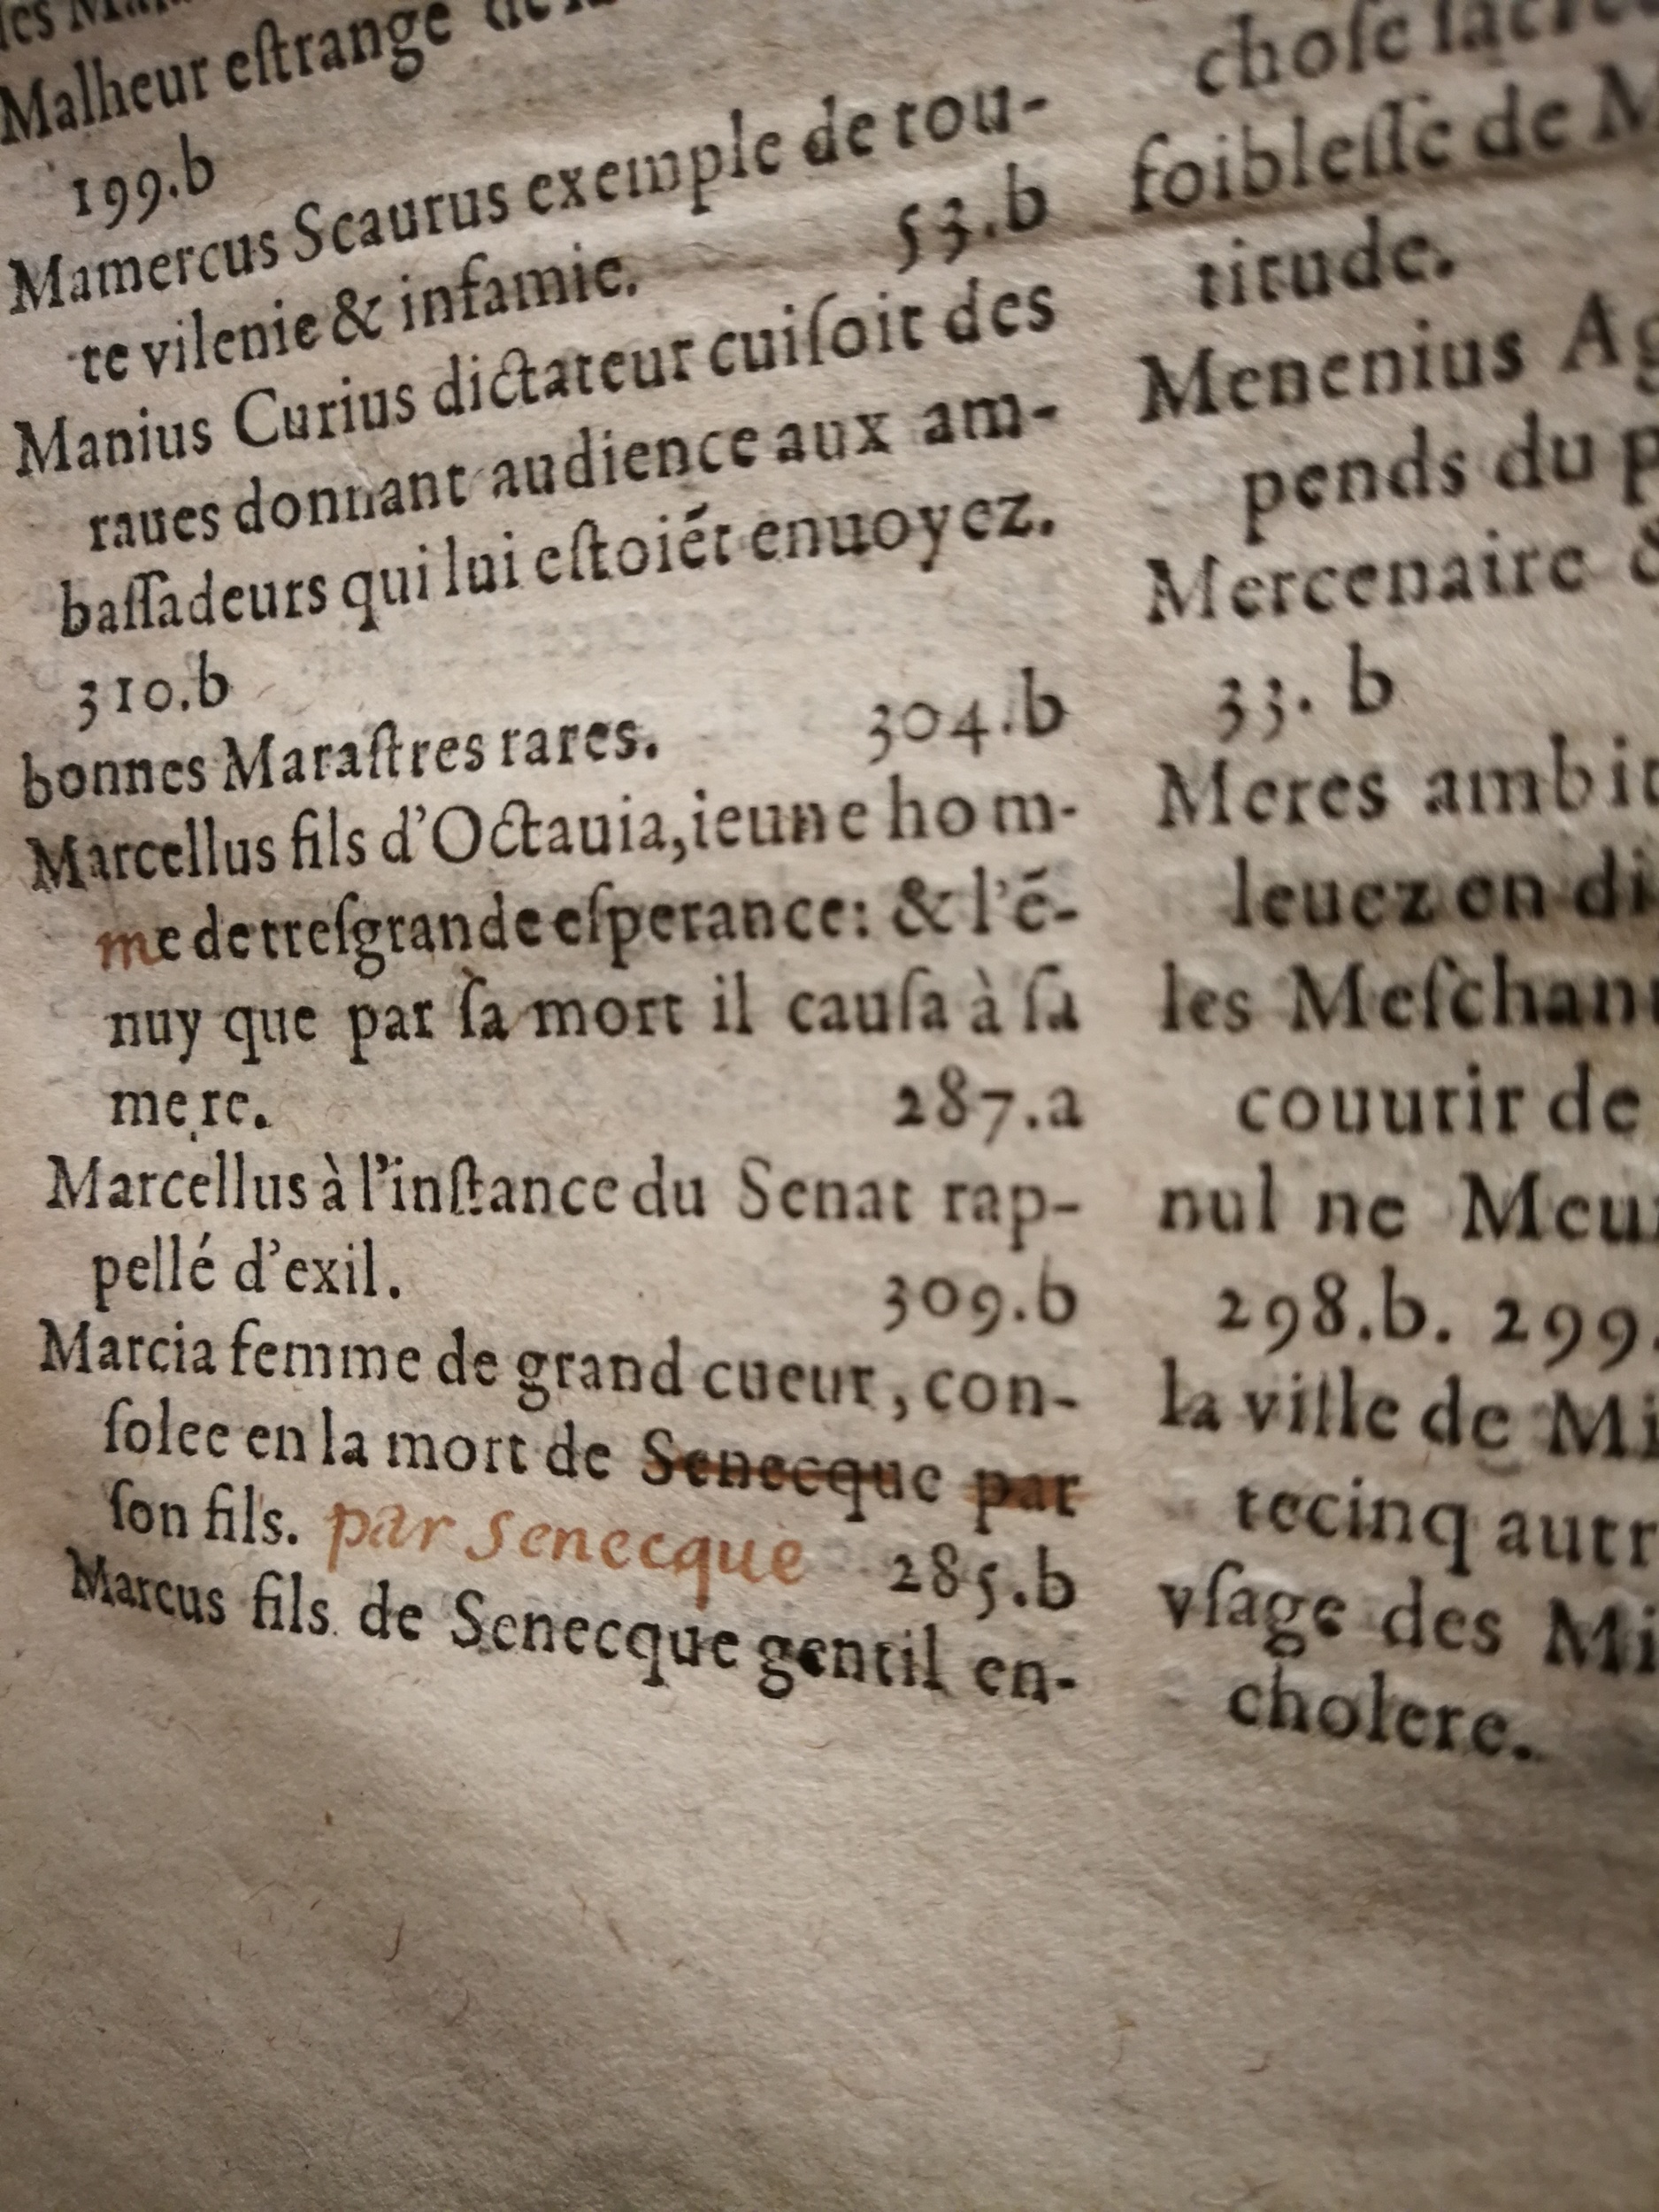 Malheur eſtrange
199.b
Mamercus Scaurus exemple de tou-
te vilenie & infamie. 53.b
Manius Curius dictateur cuiſoit des
raues donnant audience aux am-
baſſadeurs qui lui eſtoiẽt enuoyez.
310.b
bonnes Maraſtres rares. 304.b
Marcellus fils d'Octauia, ieune hom-
me de treſgrande eſperance: & l'ẽ-
nuy que par ſa mort il cauſa à ſa
mere. 287.a
Marcellus à l'inſtance du Senat rap-
pellé d'exil. 309.b
Marcia femme de grand cueur, con-
ſolee en la mort de Senecque par
ſon fils. par Senecque 285.b
Marcus fils de Senecque gentil en-
choſe
foibleſſe de
titude.
Menenius
pends du
Mercenaire
33. b
Meres
leuez en
les
couurir de
nul ne
298.b. 299.
la ville de
te cinq
vſage des
cholere.